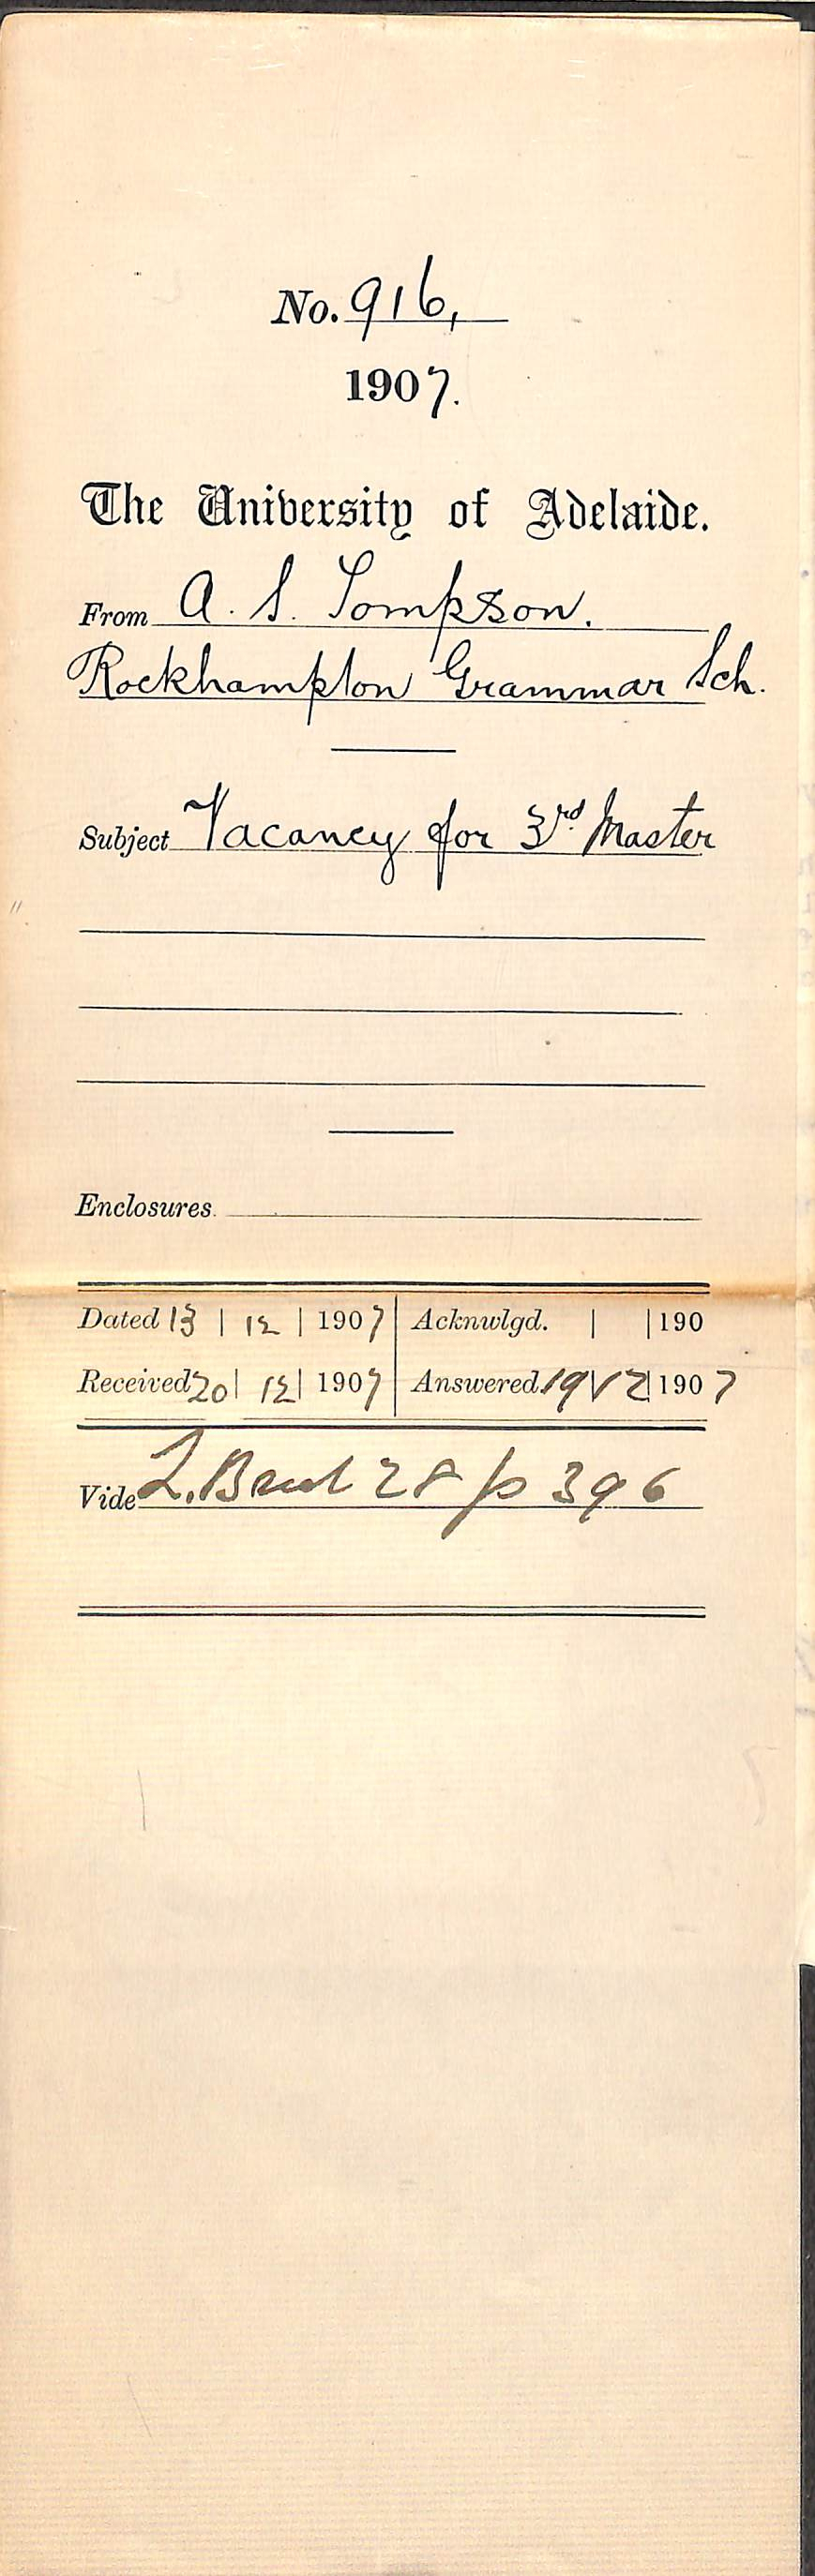 No. 916,
1907.
The University of Adelaide.
From A. S. Tompson.
Rockhampton Grammar Sch.
Subject Vacancy for 3rd Master
Enclosures
Dated 13 | 12 | 1907 | Acknwlgd. | | 190
Received 20 | 12 | 1907 | Answered 19 | 12 | 1907
Vide L. 28 p 396